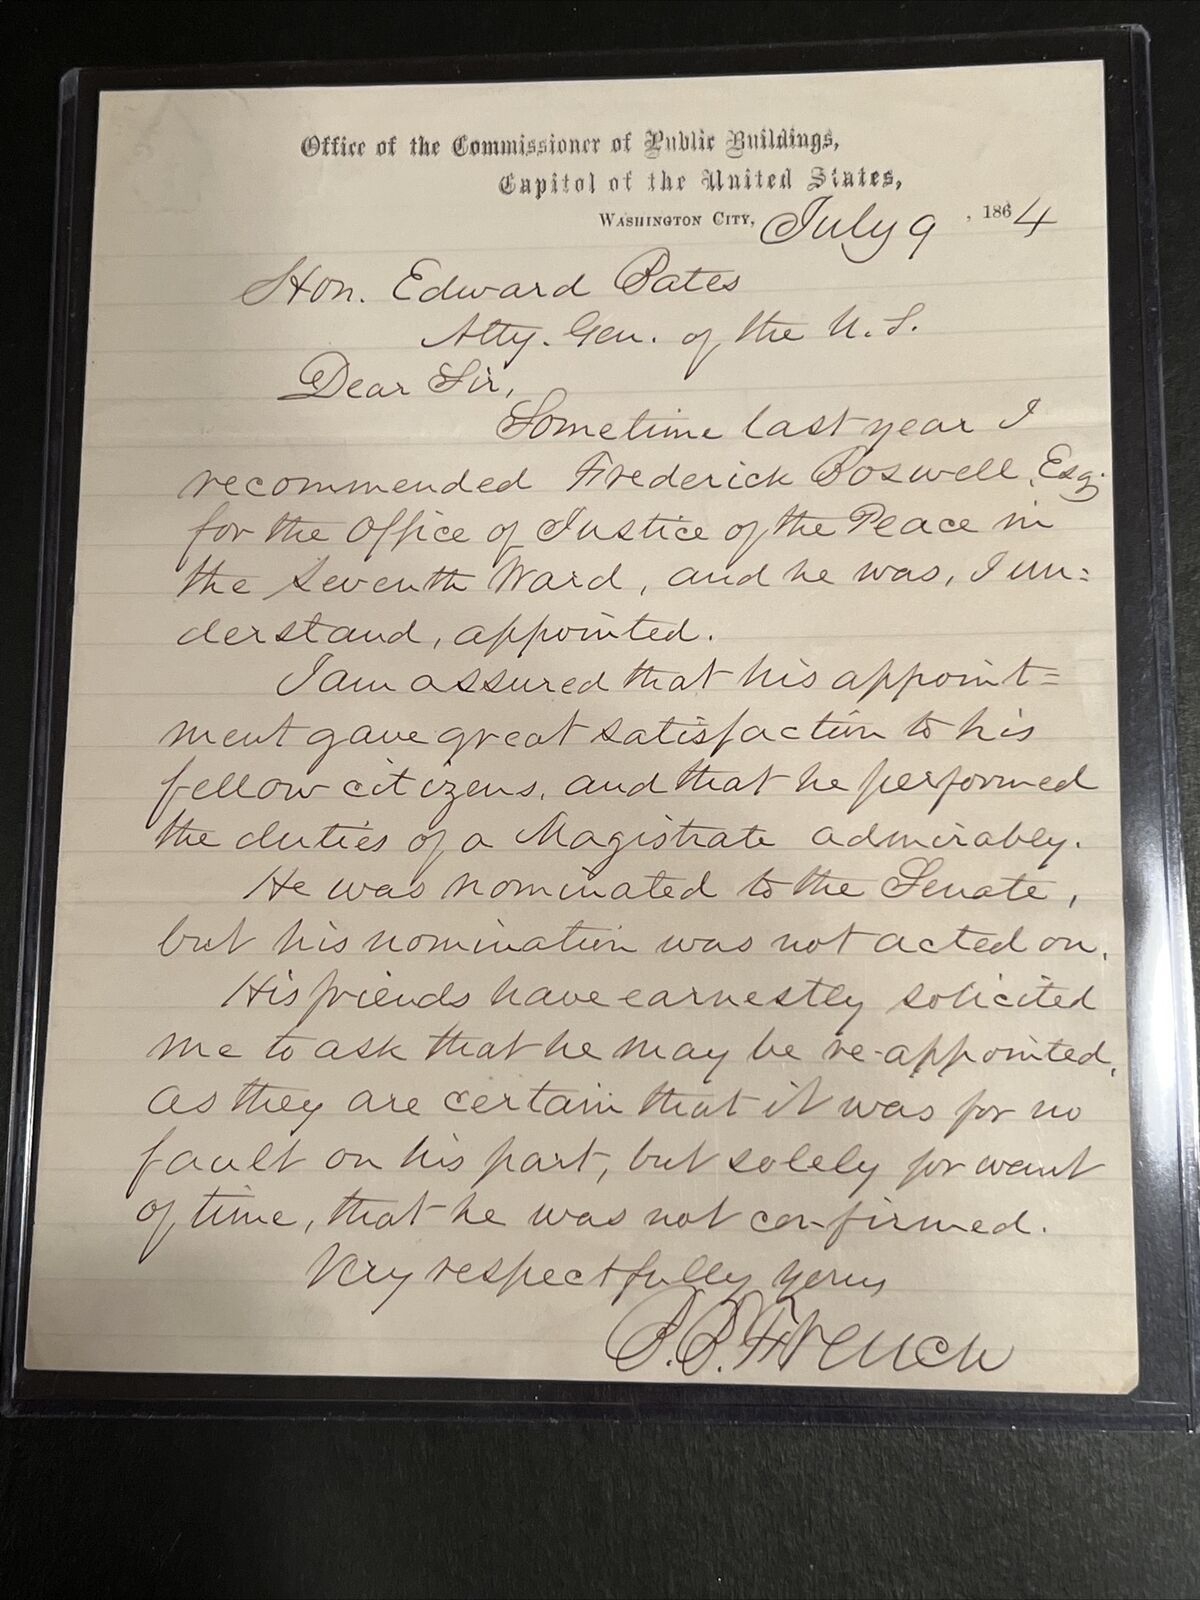 Office of the Commissioner of Public Buildings,
Capitol of the United States,
Washington City, July 9, 1864
Hon. Edward Bates
Atty. Gen. of the U.S.
Dear Sir,
Sometime last year I
recommended Frederick Boswell, Esq.
for the Office of Justice of the Peace in
the Seventh Ward, and he was, I un=
derstand, appointed.
I am assured that his appoint=
ment gave great satisfaction to his
fellow citizens, and that he performed
the duties of a Magistrate admirably.
He was nominated to the Senate,
but his nomination was not acted on.
His friends have earnestly solicited
me to ask that he may be re-appointed,
as they are certain that it was for no
fault on his part, but solely for want
of time, that he was not confirmed.
Very respectfully yours
B. B. French